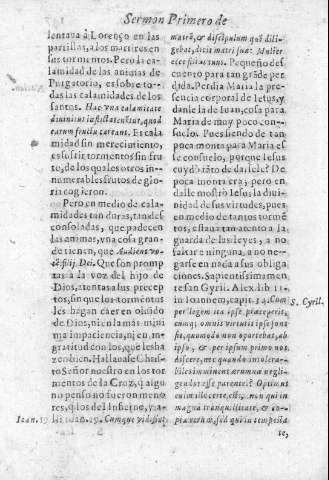 Sermon Primero de
lentaua à Lorenço en las
parrillas, a los martires en
sus tormentos. Pero la ca-
lamidad de las animas de
Purgatorio, es sobre to-
das las calamidades de los
santos. Hac vna calamitate
diuinitus
earum
Es cala-
midad sin merecimiento,
es sufrir tormentos sin fru-
to, de los quales otros in-
numerables frutos de glo-
ria cogieron.
Pero en medio de cala-
midades tan duras, tan des
consoladas, que padecen
las animas, vna cosa gran-
de tienen, que Audient vo-
cē filij Dei. Que son promp
tas a la voz del hijo de
Dios, atentas a sus precep
tos, sin que los tormentos
les hagan caer en oluido
de Dios, ni en la mas mini
ma impaciencia, ni en in-
gratitud con los que les ha
zen bien. Hallauase Chris-
to Señor nuestro en los tor
mentos de la Cruz, q̃ aigu
no penso no fueron meno-
res, que los del Infierno, y a-
lli Ioan. 19. Cumque vidisset
Ioan. 19
matrẽ, & discipulum quẽ dili-
gebat, dicit matri suæ: Mulier
ecce filius tuus. Pequeño des
cuento para tan grãde per
dida. Perdia Maria la pre-
sencia corporal de Iesus, y
danle la de Iuan, cosa para
Maria de muy poco con-
suelo. Pues siendo de tan
poca monta para Maria es
se consuelo, porque Iesus
cuydò tãto de darsele? De
poca monta era; pero en
dalle mostrò Iesus la diui-
nidad de sus virtudes, pues
en medio de tantos tormẽ
tos, estaua tan atento a la
guarda de las leyes, a no
faltar a ninguna, a no ne-
garse en nada a sus obliga
ciones. Sapientissimamen
te san Gyril. Alex. lib 11.
in Ioannem, capit. 34. Cum
S. Cyril.
per legem ita ipse præceperit,
cumq; omnis virtutis ipse fons
sit, quomodo non oportebat, ab
ipso, & per ipsum primo nos
discere, me quando intolera-
biles imminent ærumnæ negli-
gendos esse parentes? Optimũ
enim ille certe, est, non qui in
magna tranquilitate, & co-
sed qui in tempesta
te,